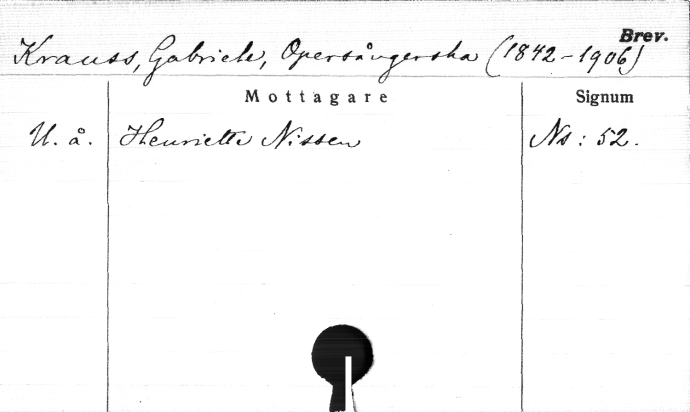 Brev.
Krauss, Gabriele, Operasångerska (1842-1906)
Mottagare Signum
U. å. Henriette Nissen Ns: 52.